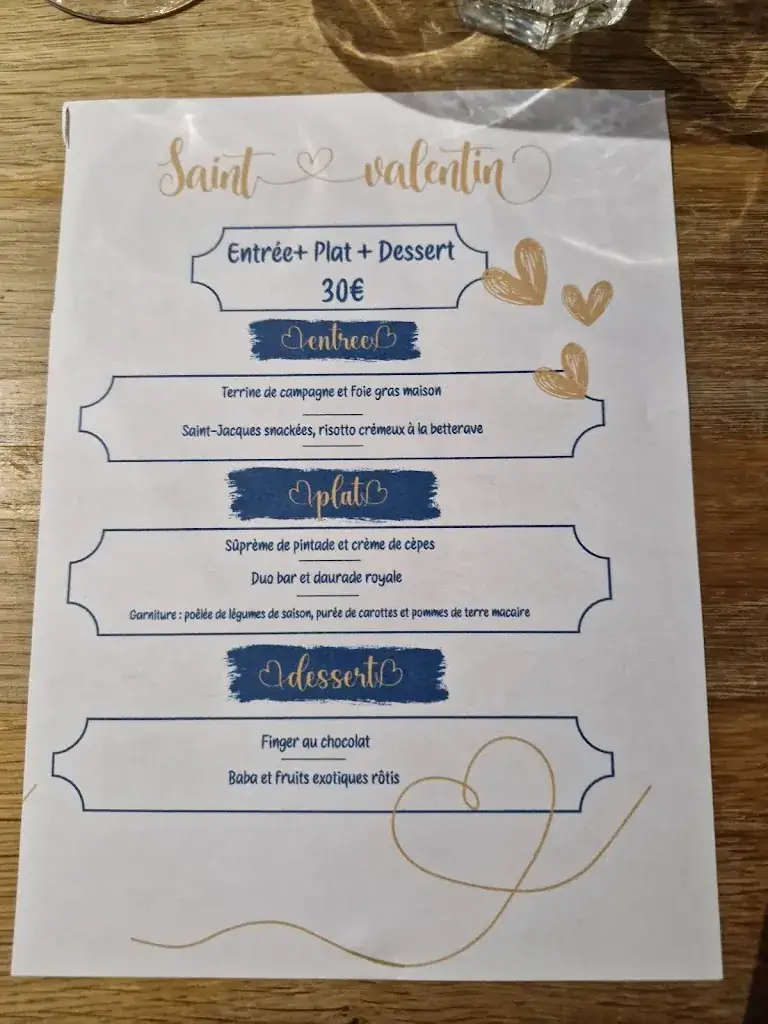 Saint valentin
Entrée+ Plat + Dessert
30€
entree
Terrine de campagne et Foie gras maison
Saint-Jacques snackées, risotto crémeux à la betterave
plat
Sûprème de pintade et crème de cèpes
Duo bar et daurade royale
Garniture : poêlée de légumes de saison, purée de carottes et pommes de terre macaire
dessert
Finger au chocolat
Baba et fruits exotiques rôtis